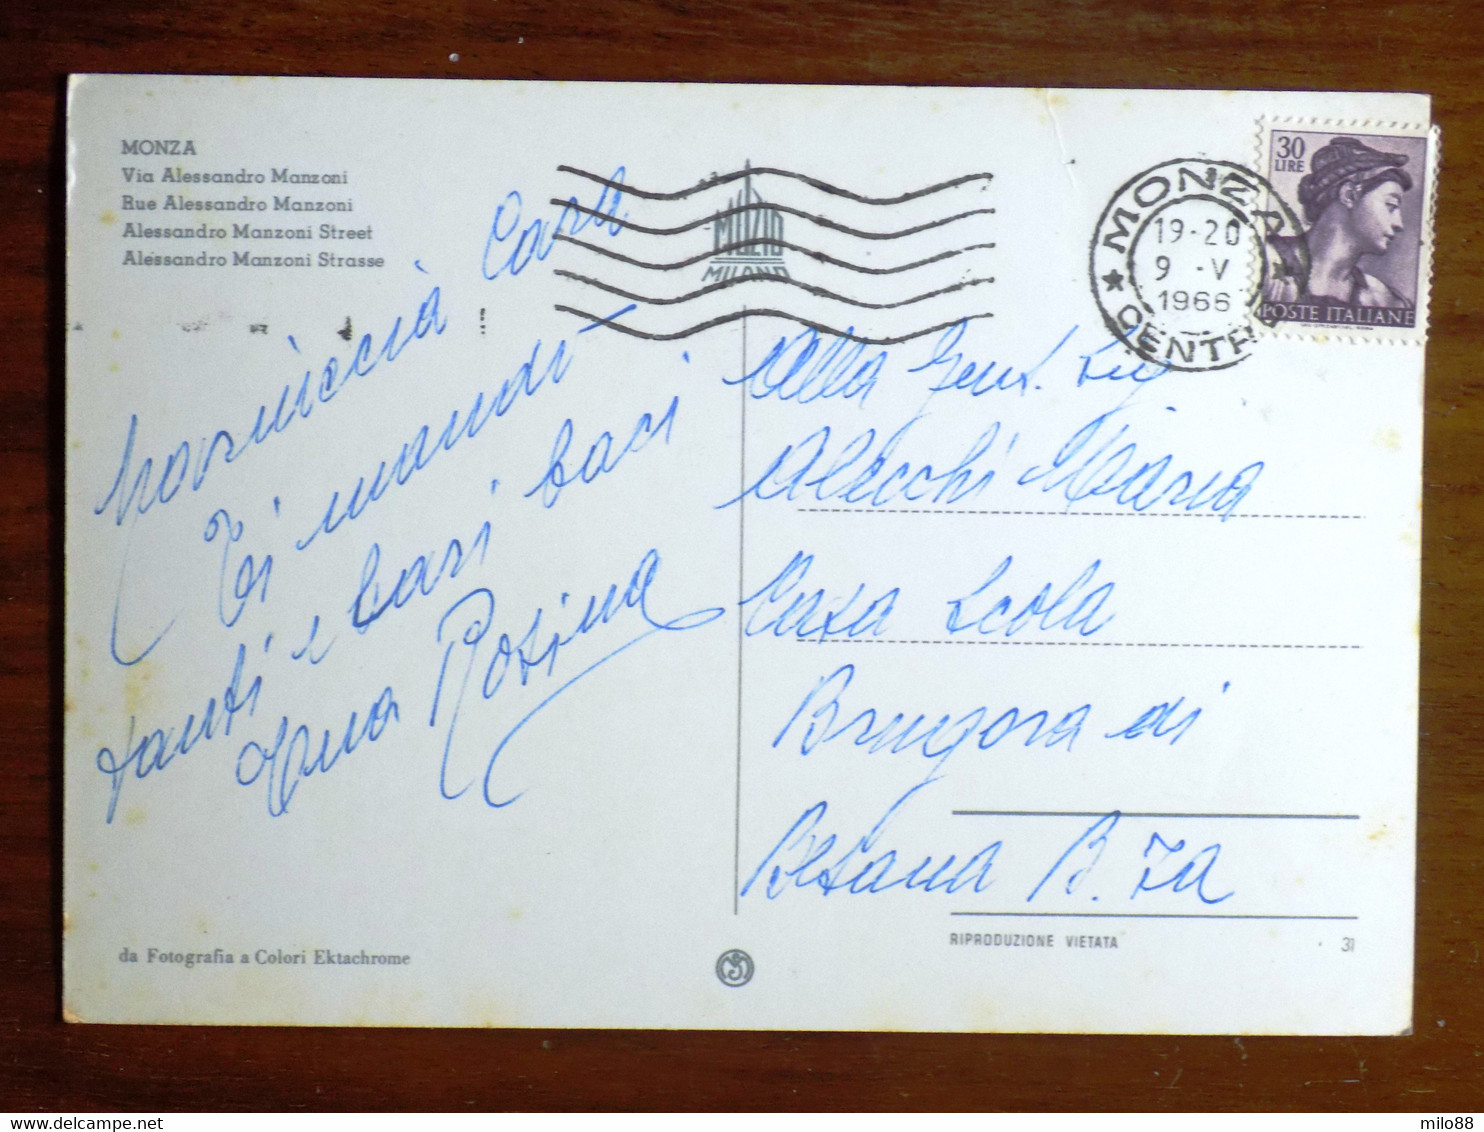 MONZA
Via Alessandro Manzoni
Rue Alessandro Manzoni
Alessandro Manzoni Street
Alessandro Manzoni Strasse
Cara
Ti mando
tanti e cari baci
Rosina
da Fotografia a Colori Ektachrome
MUZIO
MILANO
MONZA
CENTRO
19-20
9 -V
1966
30
LIRE
POSTE ITALIANE
Alla Gent. Sig
Alecchi Maria
Casa Scola
Brugora di
Besana B. za
RIPRODUZIONE VIETATA
31
milo88